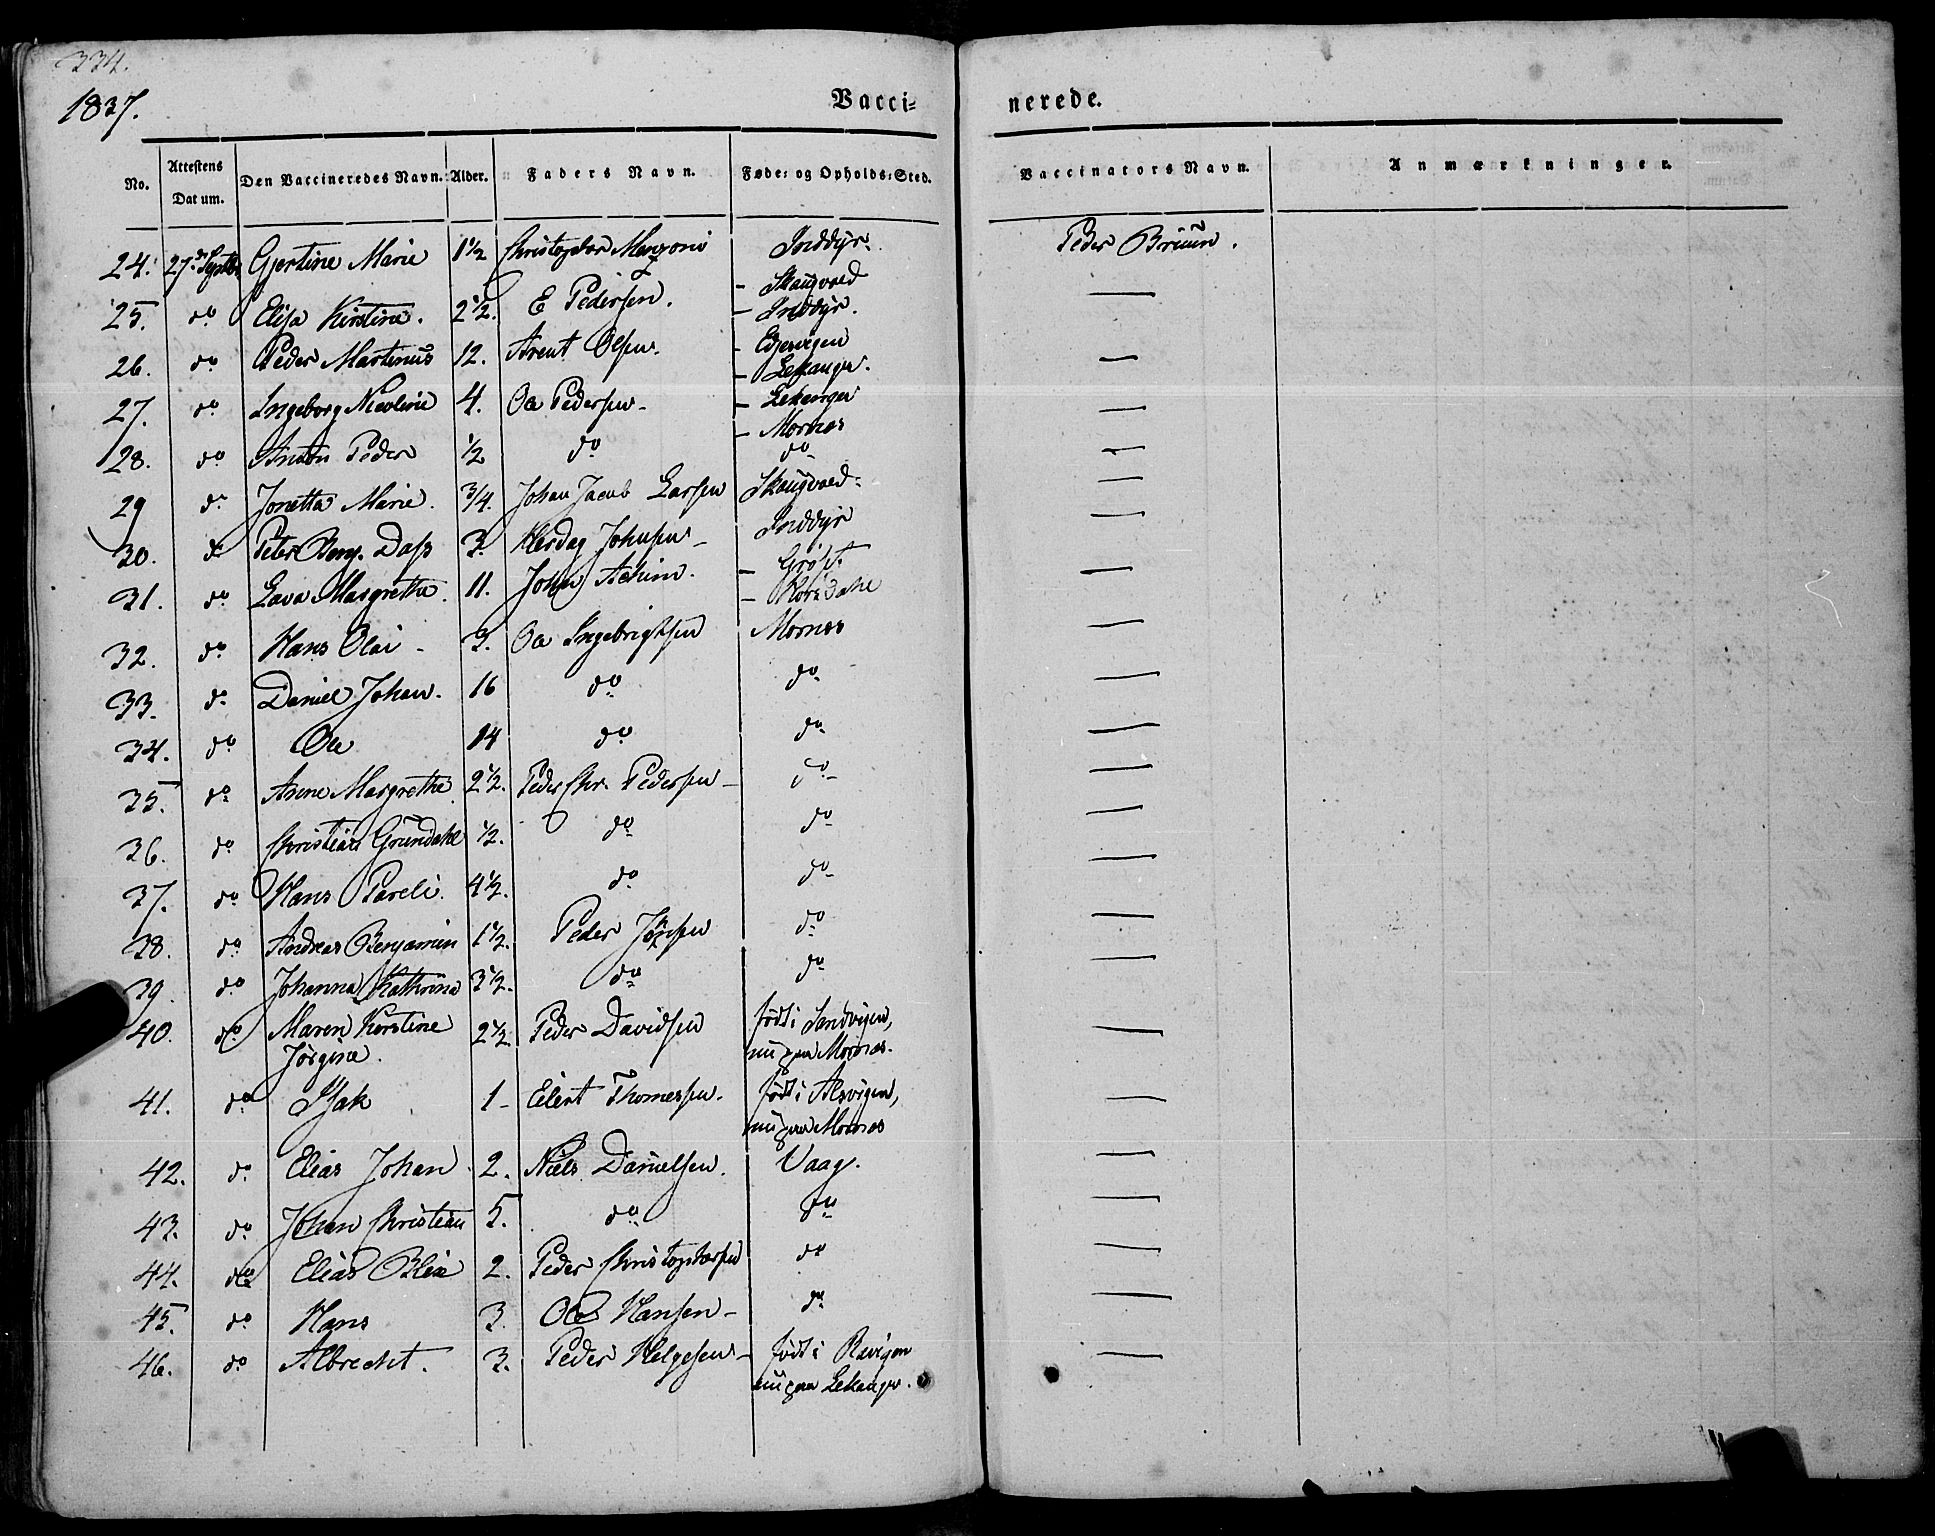 334.
1837.
Vacci= nerede.
No. Attestens Datum. Den Vaccineredes Navn. Alder. Faders Navn. Føde= og Opholds=Sted. Vaccinators Navn. Anmærkninger.
24. 27de Septbr Gjertine Marie 1 1/2 Christopher Inddyr. Peder Bruun.
- Skaugvold
25. do Elisa Kirstine. 2 1/2. E Pedersen. - Inddyr. —
26. do Peder Martinus 12. Arent Olsen. - —
- Lekanger.
27. do Ingeborg Nicoline 4. Ole Pedersen - - Lekanger —
- Mornes
28. do Anton Peder 1/2 do do —
29 do Jonetta Marie. 3/4. Johan Jacob Larsen Skaugvold - —
30. do Peter Benj. Dass 3. Herdag Johnsen - Inddyr —
- Grøft
31. do Lava Margrethe. 11. John Achim. - Korsdahl —
32. do Hans Olai - 3. Ole Ingebrigtsen Mornes —
33. do Daniel Johan. 16 do do —
34. do Ole 14 do do —
35. do Anne Margrethe. 2 1/2. Peder Chr. Pedersen - do —
36. do Christian Grundahl 1/2. do do —
37. do Hans Pareli. 4 1/2. do do —
38. do Andreas Benjamin 1 1/2. Peder Jönsen do —
39. do Johanna Kathrina 3 1/2. do do —
40. do Maren Kerstine 2 1/2 Peder Davidsen født i Sandvigen, —
Jørgine. nu paa Mornes.
41. do Isak 1 - Eilert Thomessen. født i Alsvigen, —
nu paa Mornes
42. do Elias Johan 2. Niels Danielsen. Vaag. —
43. do Johan Christian 5. do do —
44. do Elias Blix 2. Peder Christophersen do —
45. do Hans 3. Ole Hansen - do —
46. do Albrecht. 3. Peder Helgesen - født i Ravigen —
nu paa Lekanger.